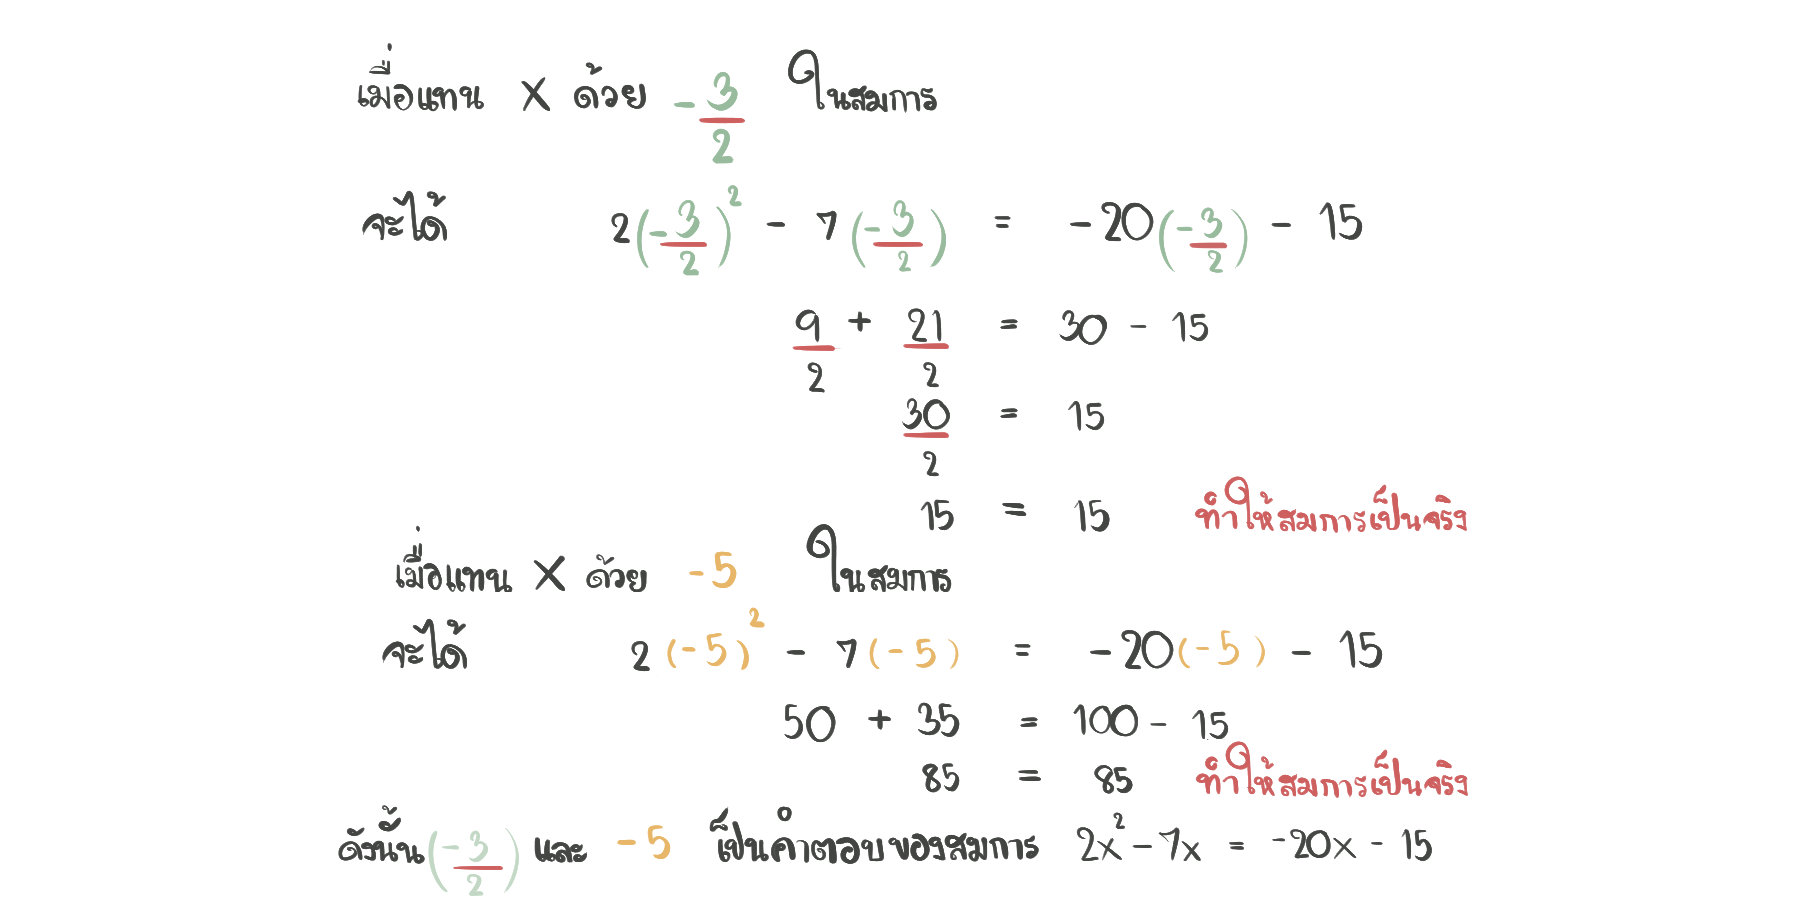 เมื่อแทน x ด้วย -3/2 ในสมการ
จะได้ 2(-3/2)² - 7(-3/2) = -20(-3/2) - 15
9/2 + 21/2 = 30 - 15
30/2 = 15
15 = 15 ทำให้สมการเป็นจริง
เมื่อแทน x ด้วย -5 ในสมการ
จะได้ 2(-5)² - 7(-5) = -20(-5) - 15
50 + 35 = 100 - 15
85 = 85 ทำให้สมการเป็นจริง
ดังนั้น (-3/2) และ -5 เป็นคำตอบของสมการ 2x² - 7x = -20x - 15